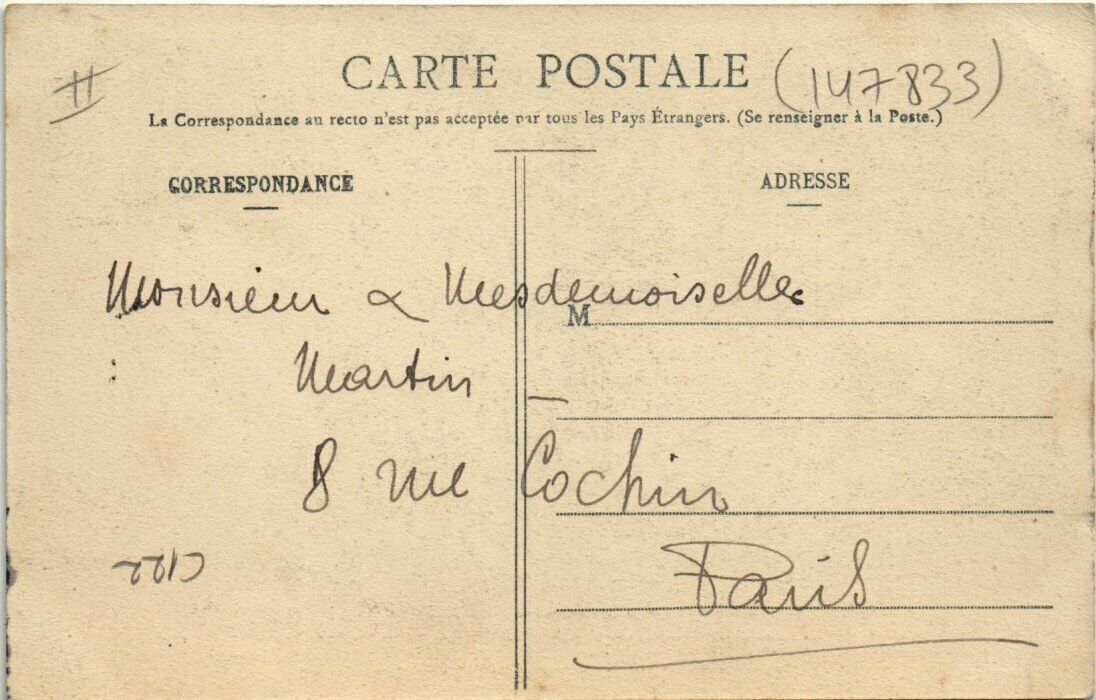 CARTE POSTALE (147833)
La Correspondance au recto n'est pas acceptée par tous les Pays Étrangers. (Se renseigner à la Poste.)
CORRESPONDANCE
ADRESSE
Monsieur & Mesdemoiselles
M
Martin
8 rue Cochin
Paris